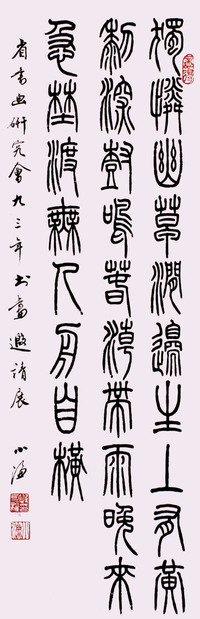 獨憐幽草澗邊生上有黃
鸝深樹鳴春潮帶雨晚來
急埜渡無人舟自橫
省書画研究會九三年书畫邀请展